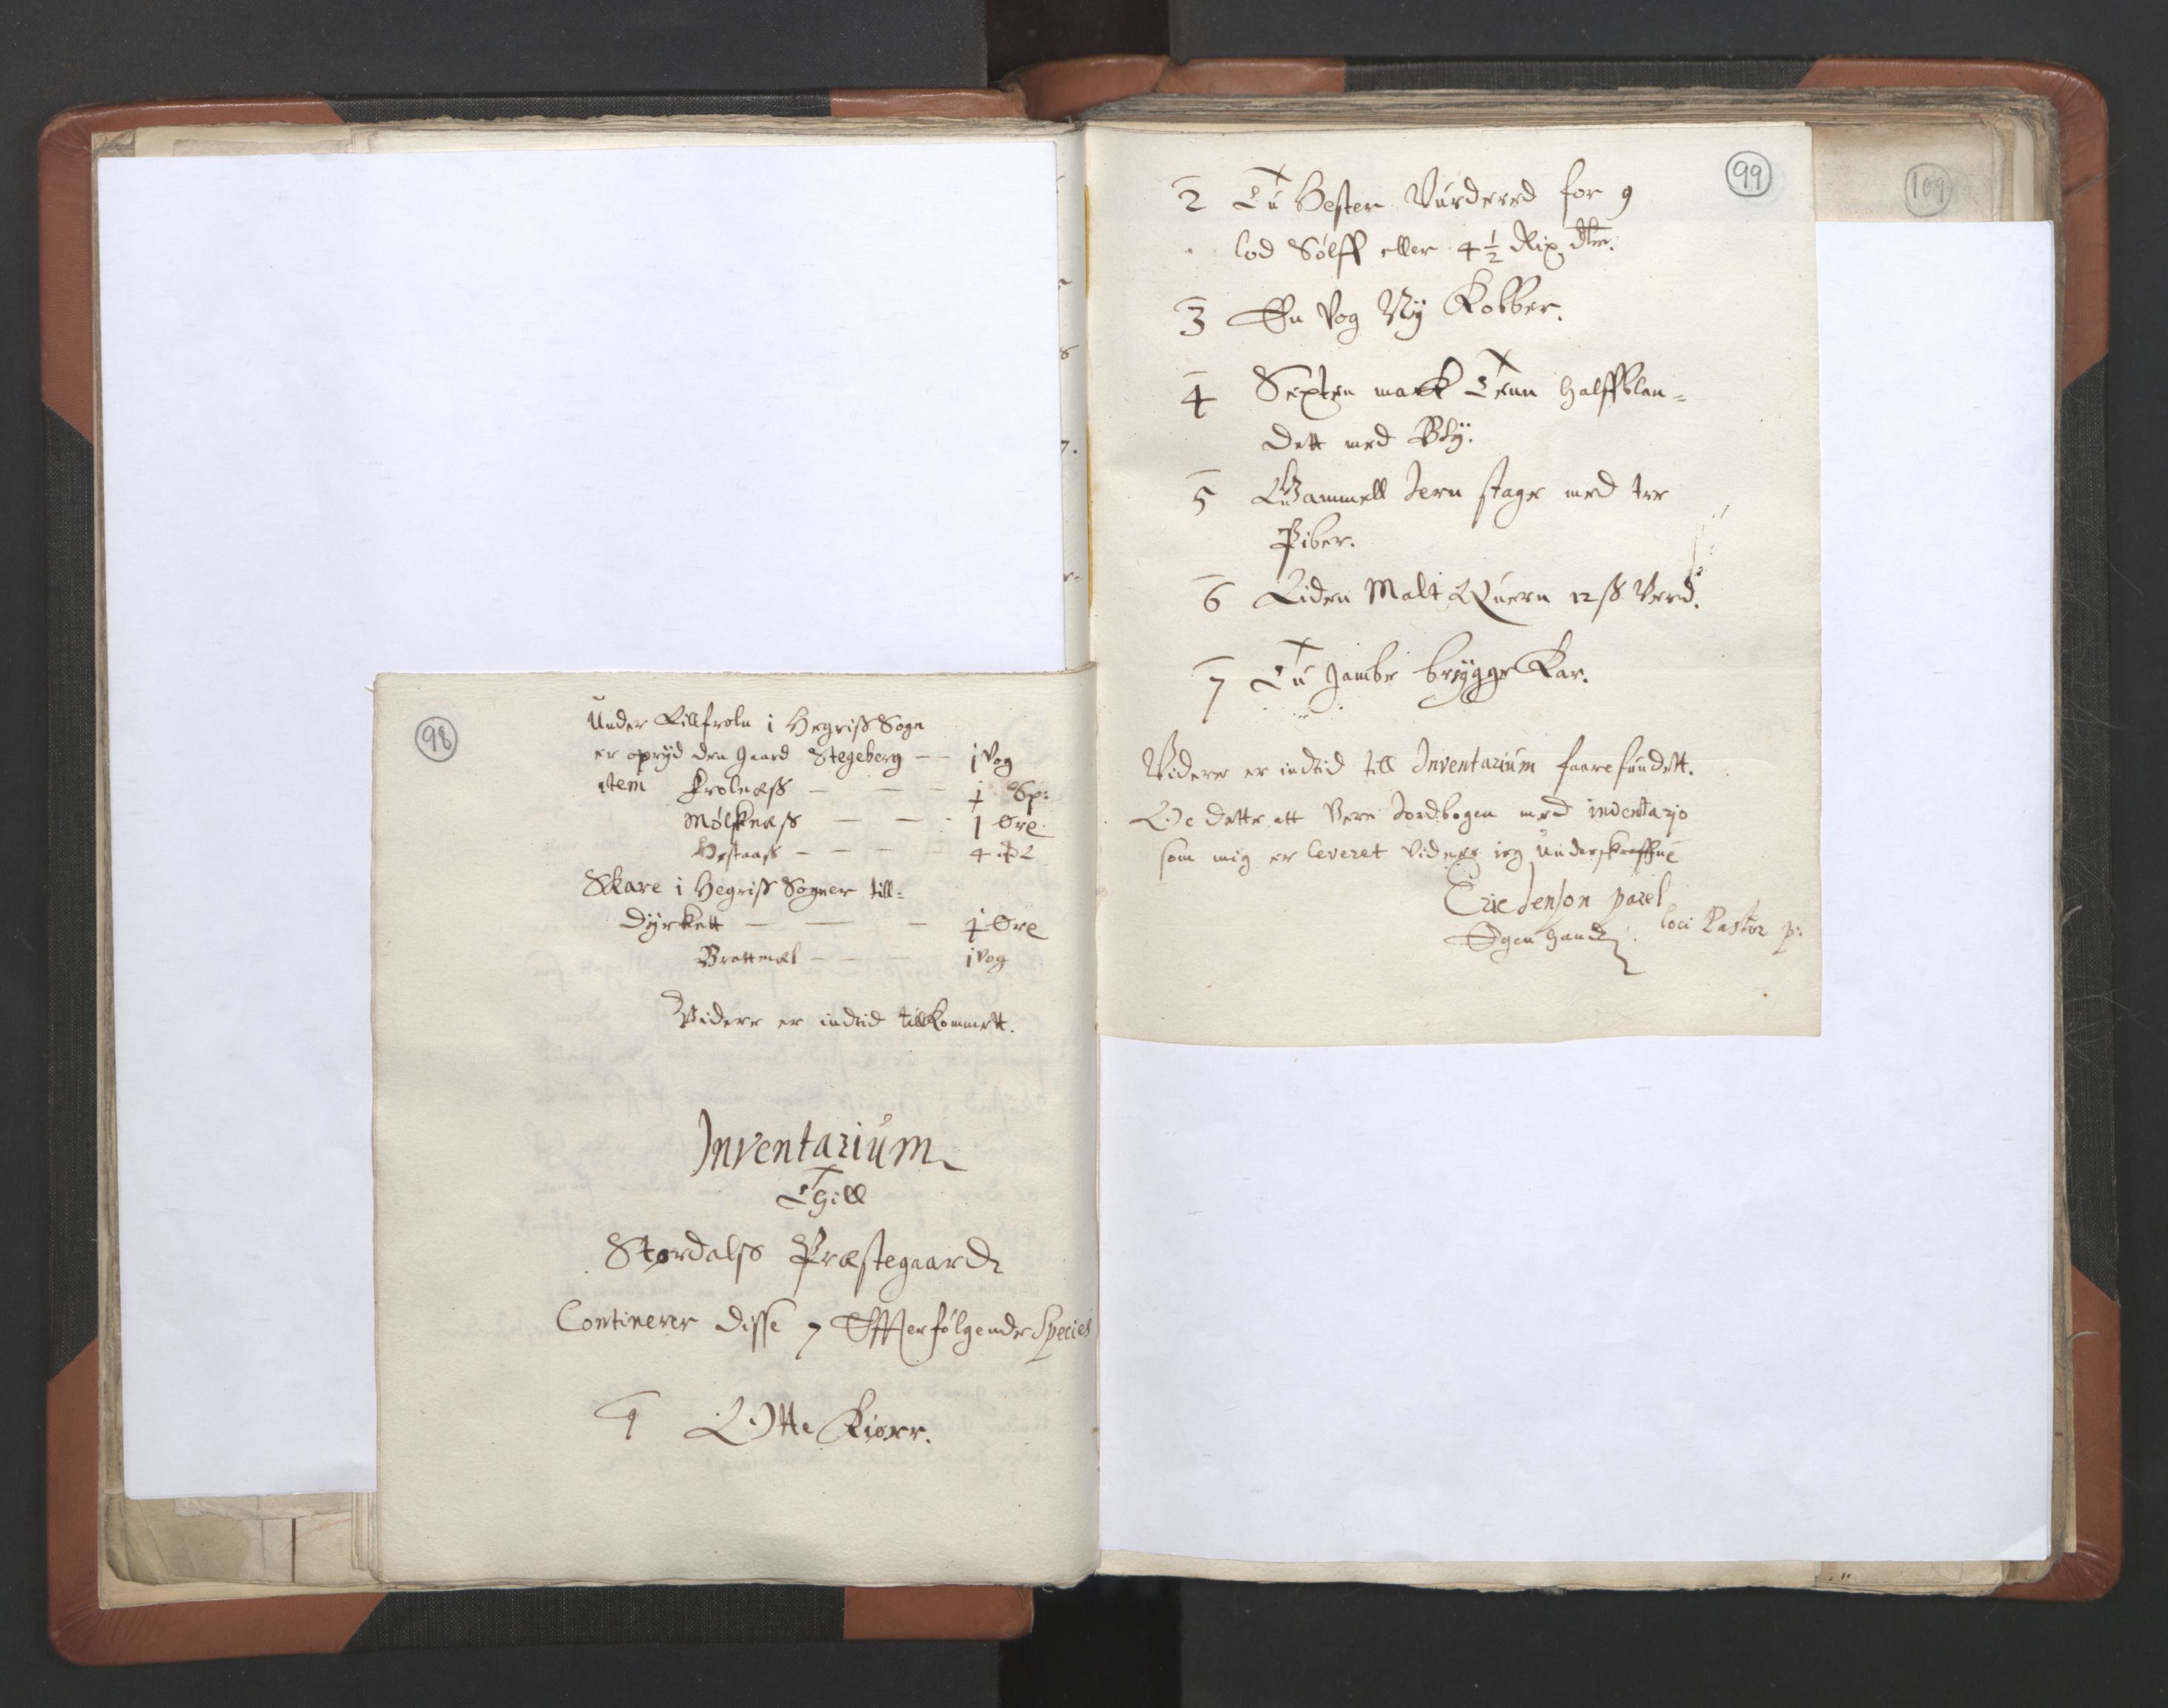 98
Under Lillfroln i Hegriss Sogn
er opryd den Gaard Stegeberg — — j Vog
item Frolnæss — — — ½ Sp:
Mølsknæss — — - 1 Øre
Hestaass — — — 4 ℔
Skare i Hegriss Sogner till=
dyrkett — — — ½ Øre
Brattmæl — — — j Vog
Videre er indtid tillkommett.
Inventarium
Thill
Størdalss Præstegaard
Continerer disse 7 Effterfølgende Species
1 Otte Kiøer.
99
2 Tu Hester Vurdered for 9
lod Sølff eller 4 ½ Rix dlr.
3 En Vog Ny Kobber.
4 Sexten mark Tenn halffblan=
dett med Bly.
5 Gammell Jern stage med tre
Piber.
6 Liden Malt Quern 12 ß Verd.
7 Tu Jambe brygge Kar.
Videre er indtid till Inventarium faarefundett.
Og dette att Vere Jordbogen med inventario
som mig er leveret vidner ieg Underskreffne
Eric Jenson
Egen Hand
loci Pastor p:
109